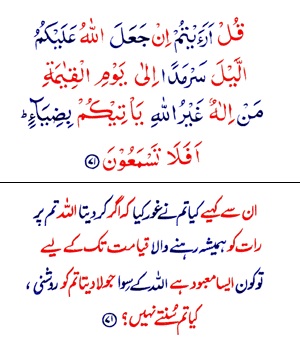 قُلْ اَرَءَيْتُمْ اِنْ جَعَلَ اللهُ عَلَيْكُمُ
الَّيْلَ سَرْمَدًا اِلٰى يَوْمِ الْقِيٰمَةِ
مَنْ اِلٰهٌ غَيْرُ اللهِ يَاْتِيْكُمْ بِضِيَآءٍ ؕ
اَفَلَا تَسْمَعُوْنَ ﴿۷۱﴾
ان سے کہیے کیا تم نے غور کیا کہ اگر کر دیتا اللہ تم پر
رات کو ہمیشہ رہنے والا قیامت تک کے لیے
تو کون ایسا معبود ہے اللہ کے سِوا جو لا دیتا تم کو روشنی ،
کیا تم سُنتے نہیں ؟ ﴿۷۱﴾